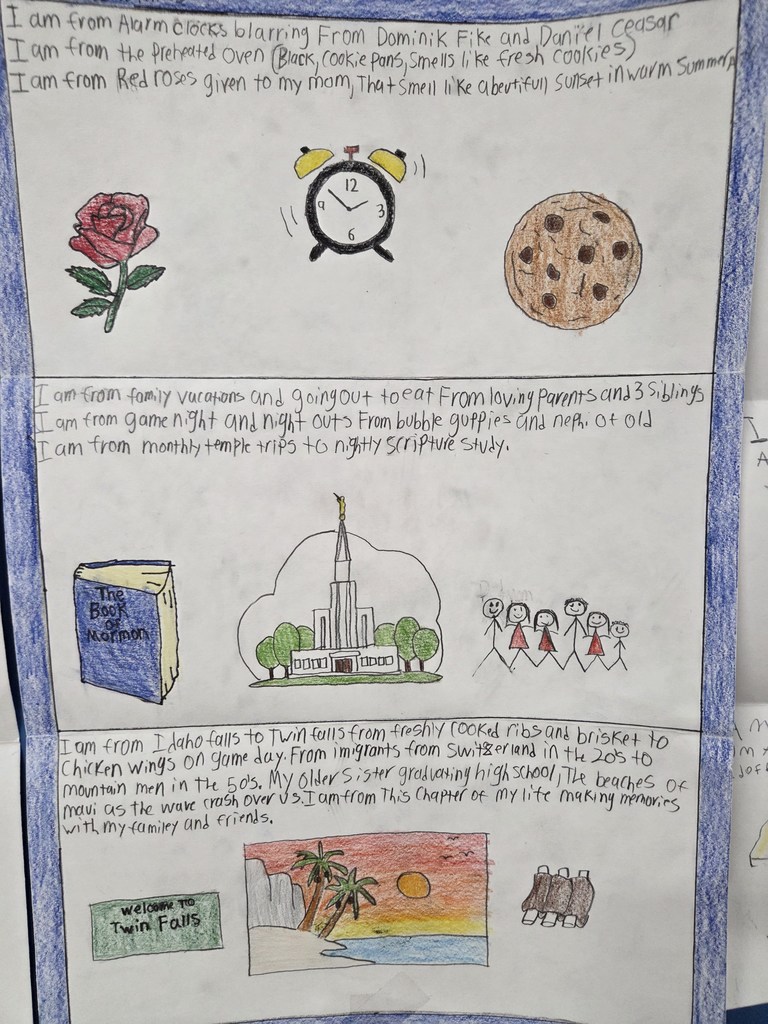 I am from Alarm clocks blarring From Dominik Fike and Daniel Ceasar
I am from the Preheated Oven (Black, Cookie Pans, Smells like fresh cookies)
I am from Red roses given to my mom, That smell like a beutifull sunset in warm Summer
12
9
3
6
I am from family vacations and going out to eat From loving Parents and 3 Siblings
I am from game night and night outs From bubble guppies and nephi of old
I am from monthly temple trips to nightly scripture study.
The
Book
of
Mormon
I am from Idaho falls to Twin falls from freshly cooked ribs and brisket to
Chicken wings on game day. From imigrants from Switzerland in the 20's to
mountain men in the 50's. My older sister graduating high school, The beaches of
mavi as the wave crash over us. I am from This Chapter of my life making memories
with my familey and friends.
Welcome To
Twin Falls